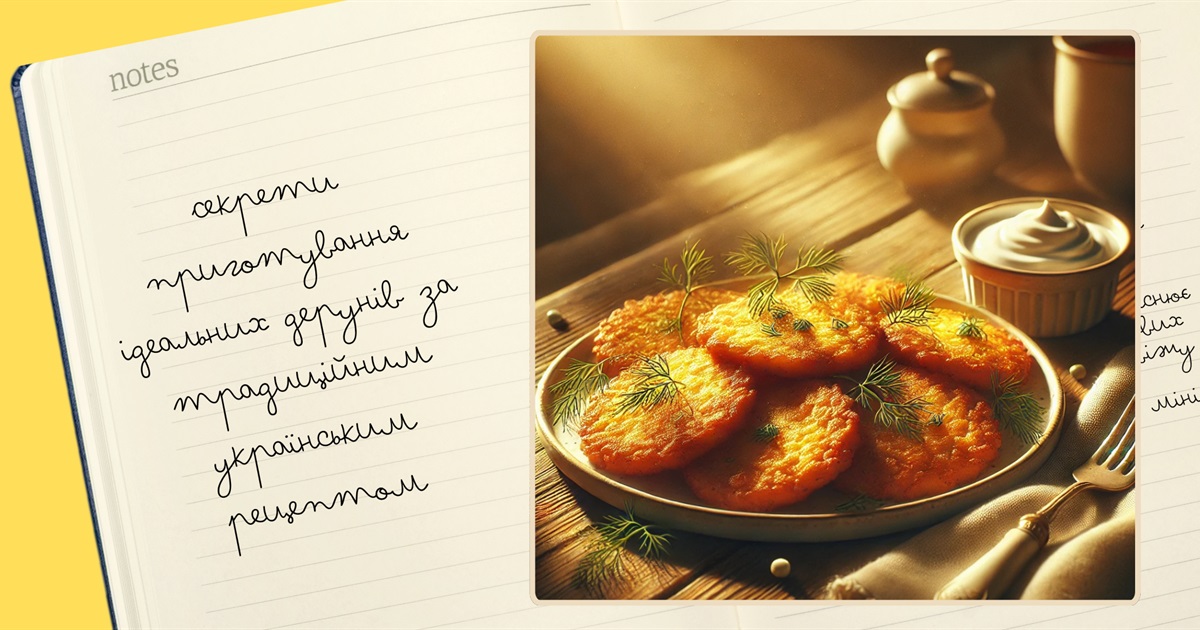 notes
секрети
приготування
ідеальних дерунів за
традиційним
українським
рецептом